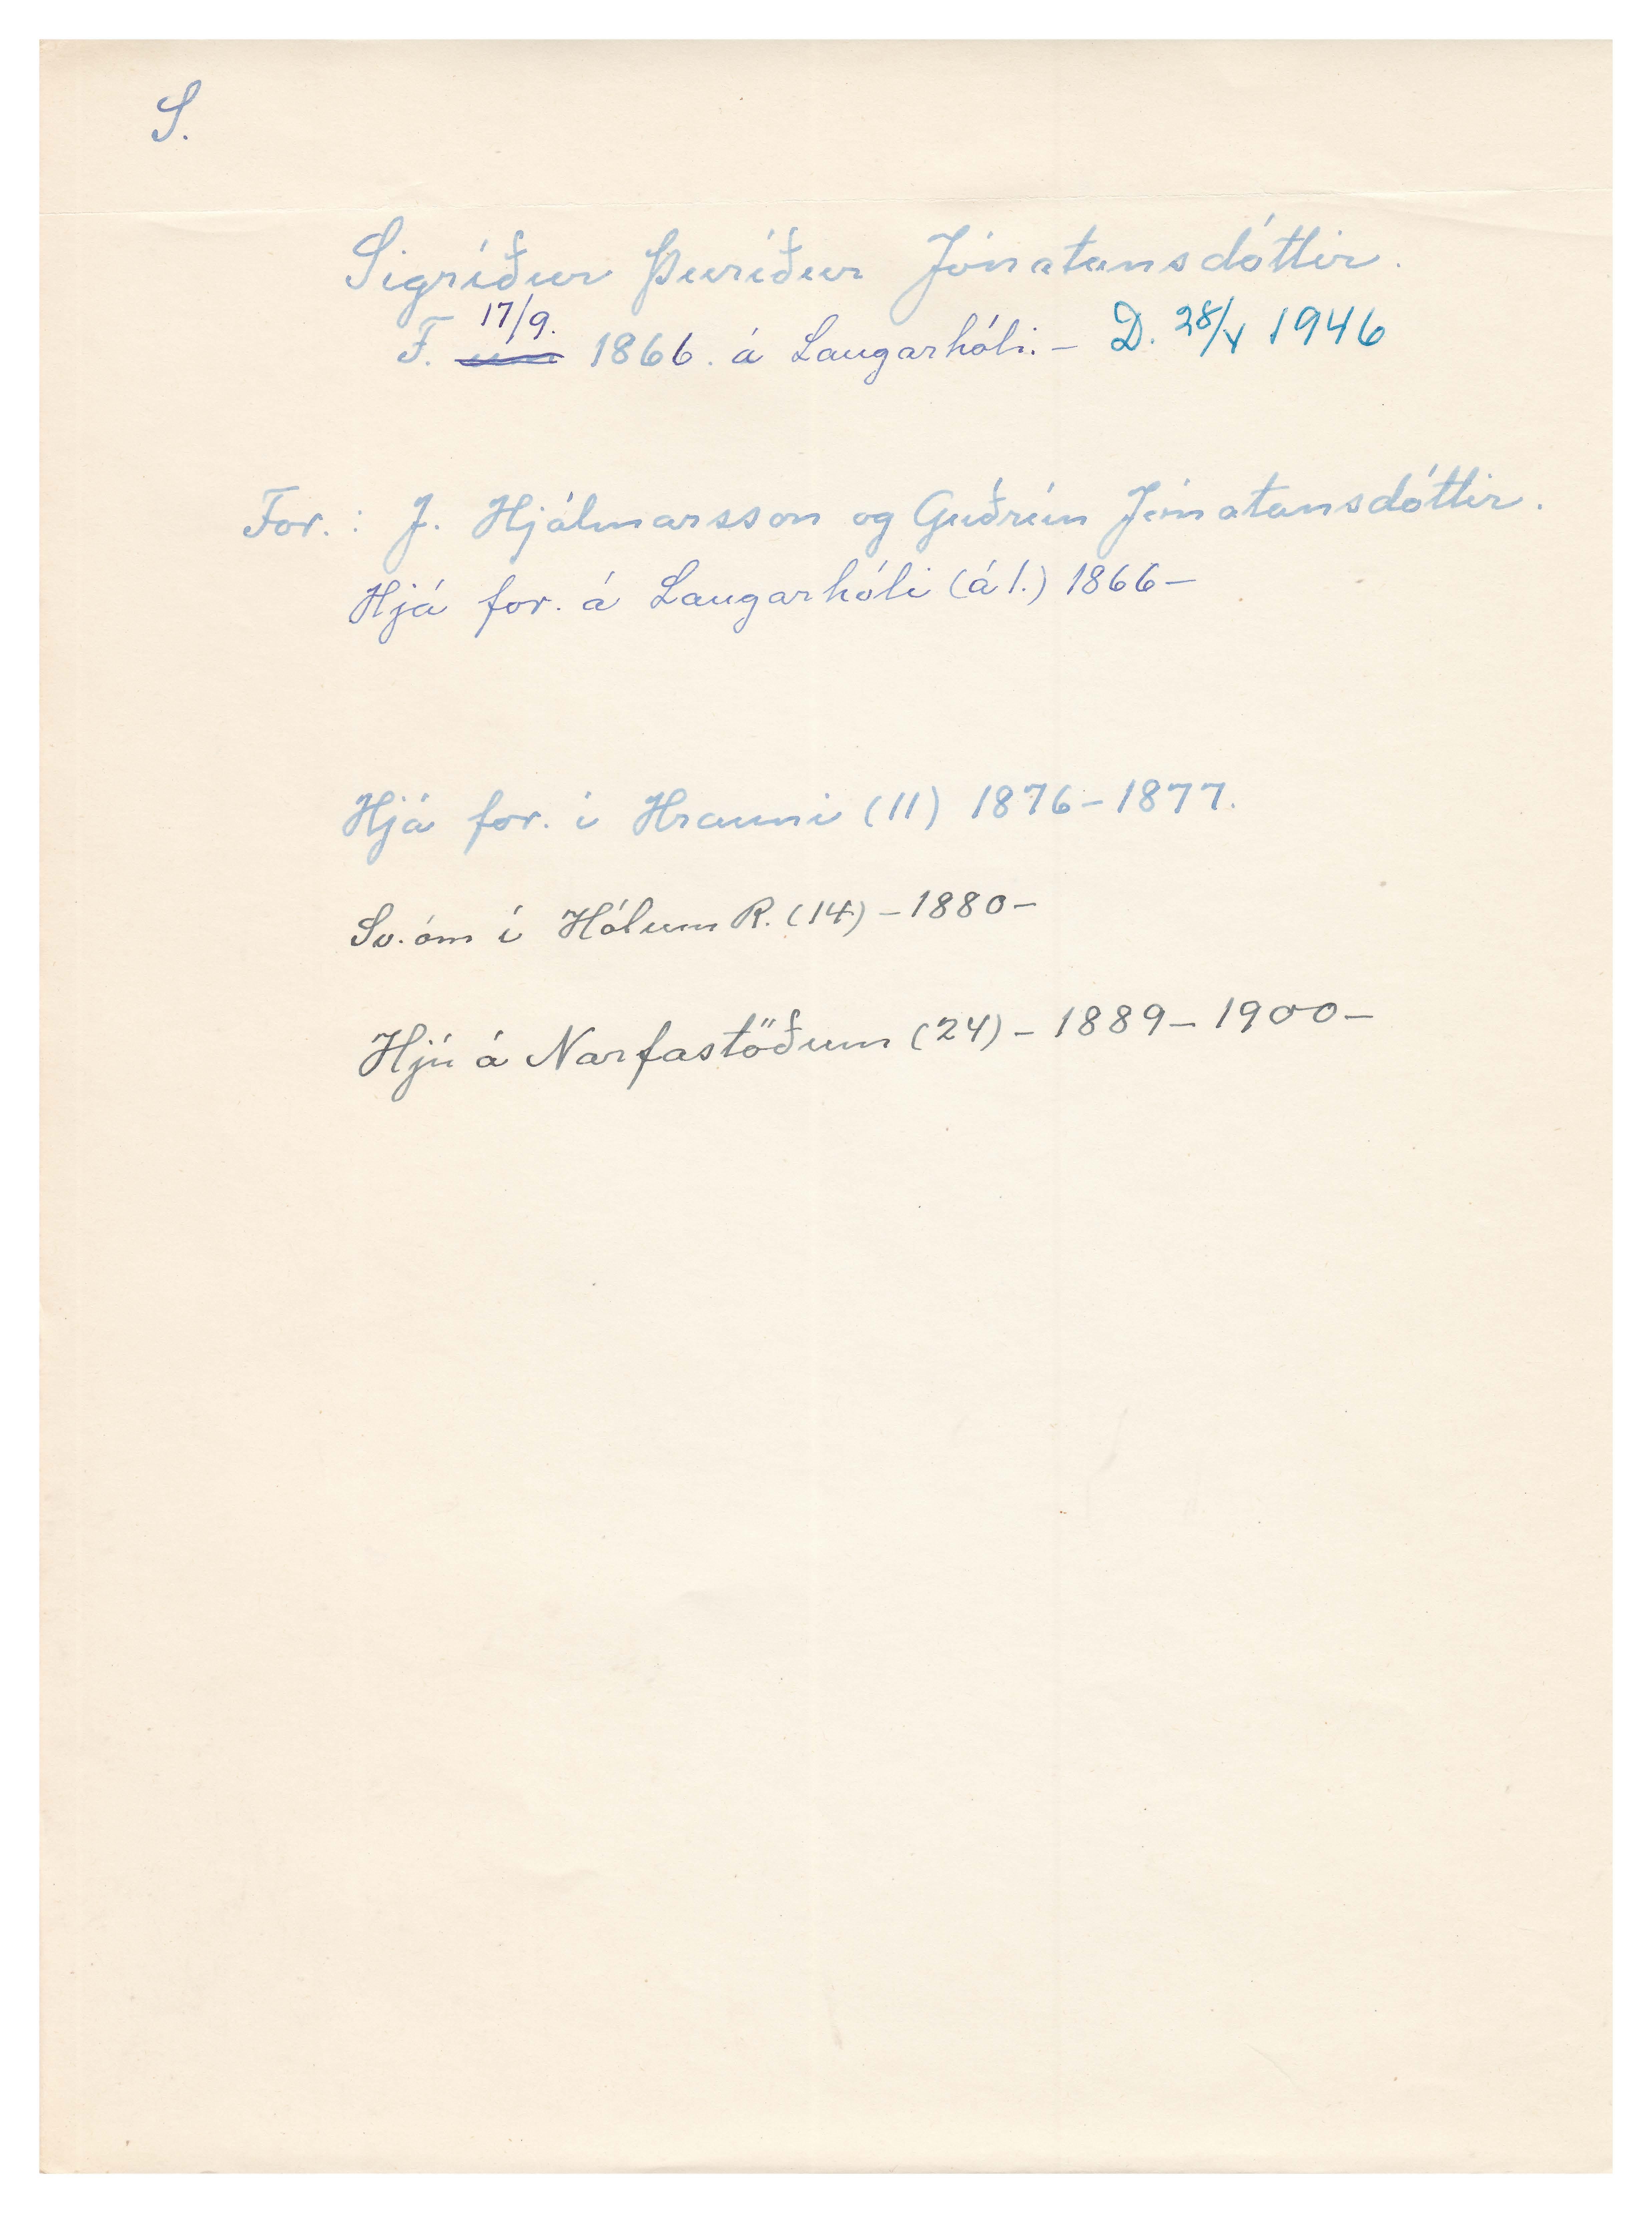 S.
Sigríður Þuríður Jónatansdóttir.
F. 17/9. 1866. á Laugarhóli. – D. 28/V 1946
For.: J. Hjálmarsson og Guðrún Jónatansdóttir.
Hjá for. á Laugarhóli (á 1.) 1866 –
Hjá for. í Hrauni (11) 1876 – 1877.
Sv. óm í Hólum R. (14) – 1880 –
Hjú á Narfastöðum (24) – 1889 – 1900 –